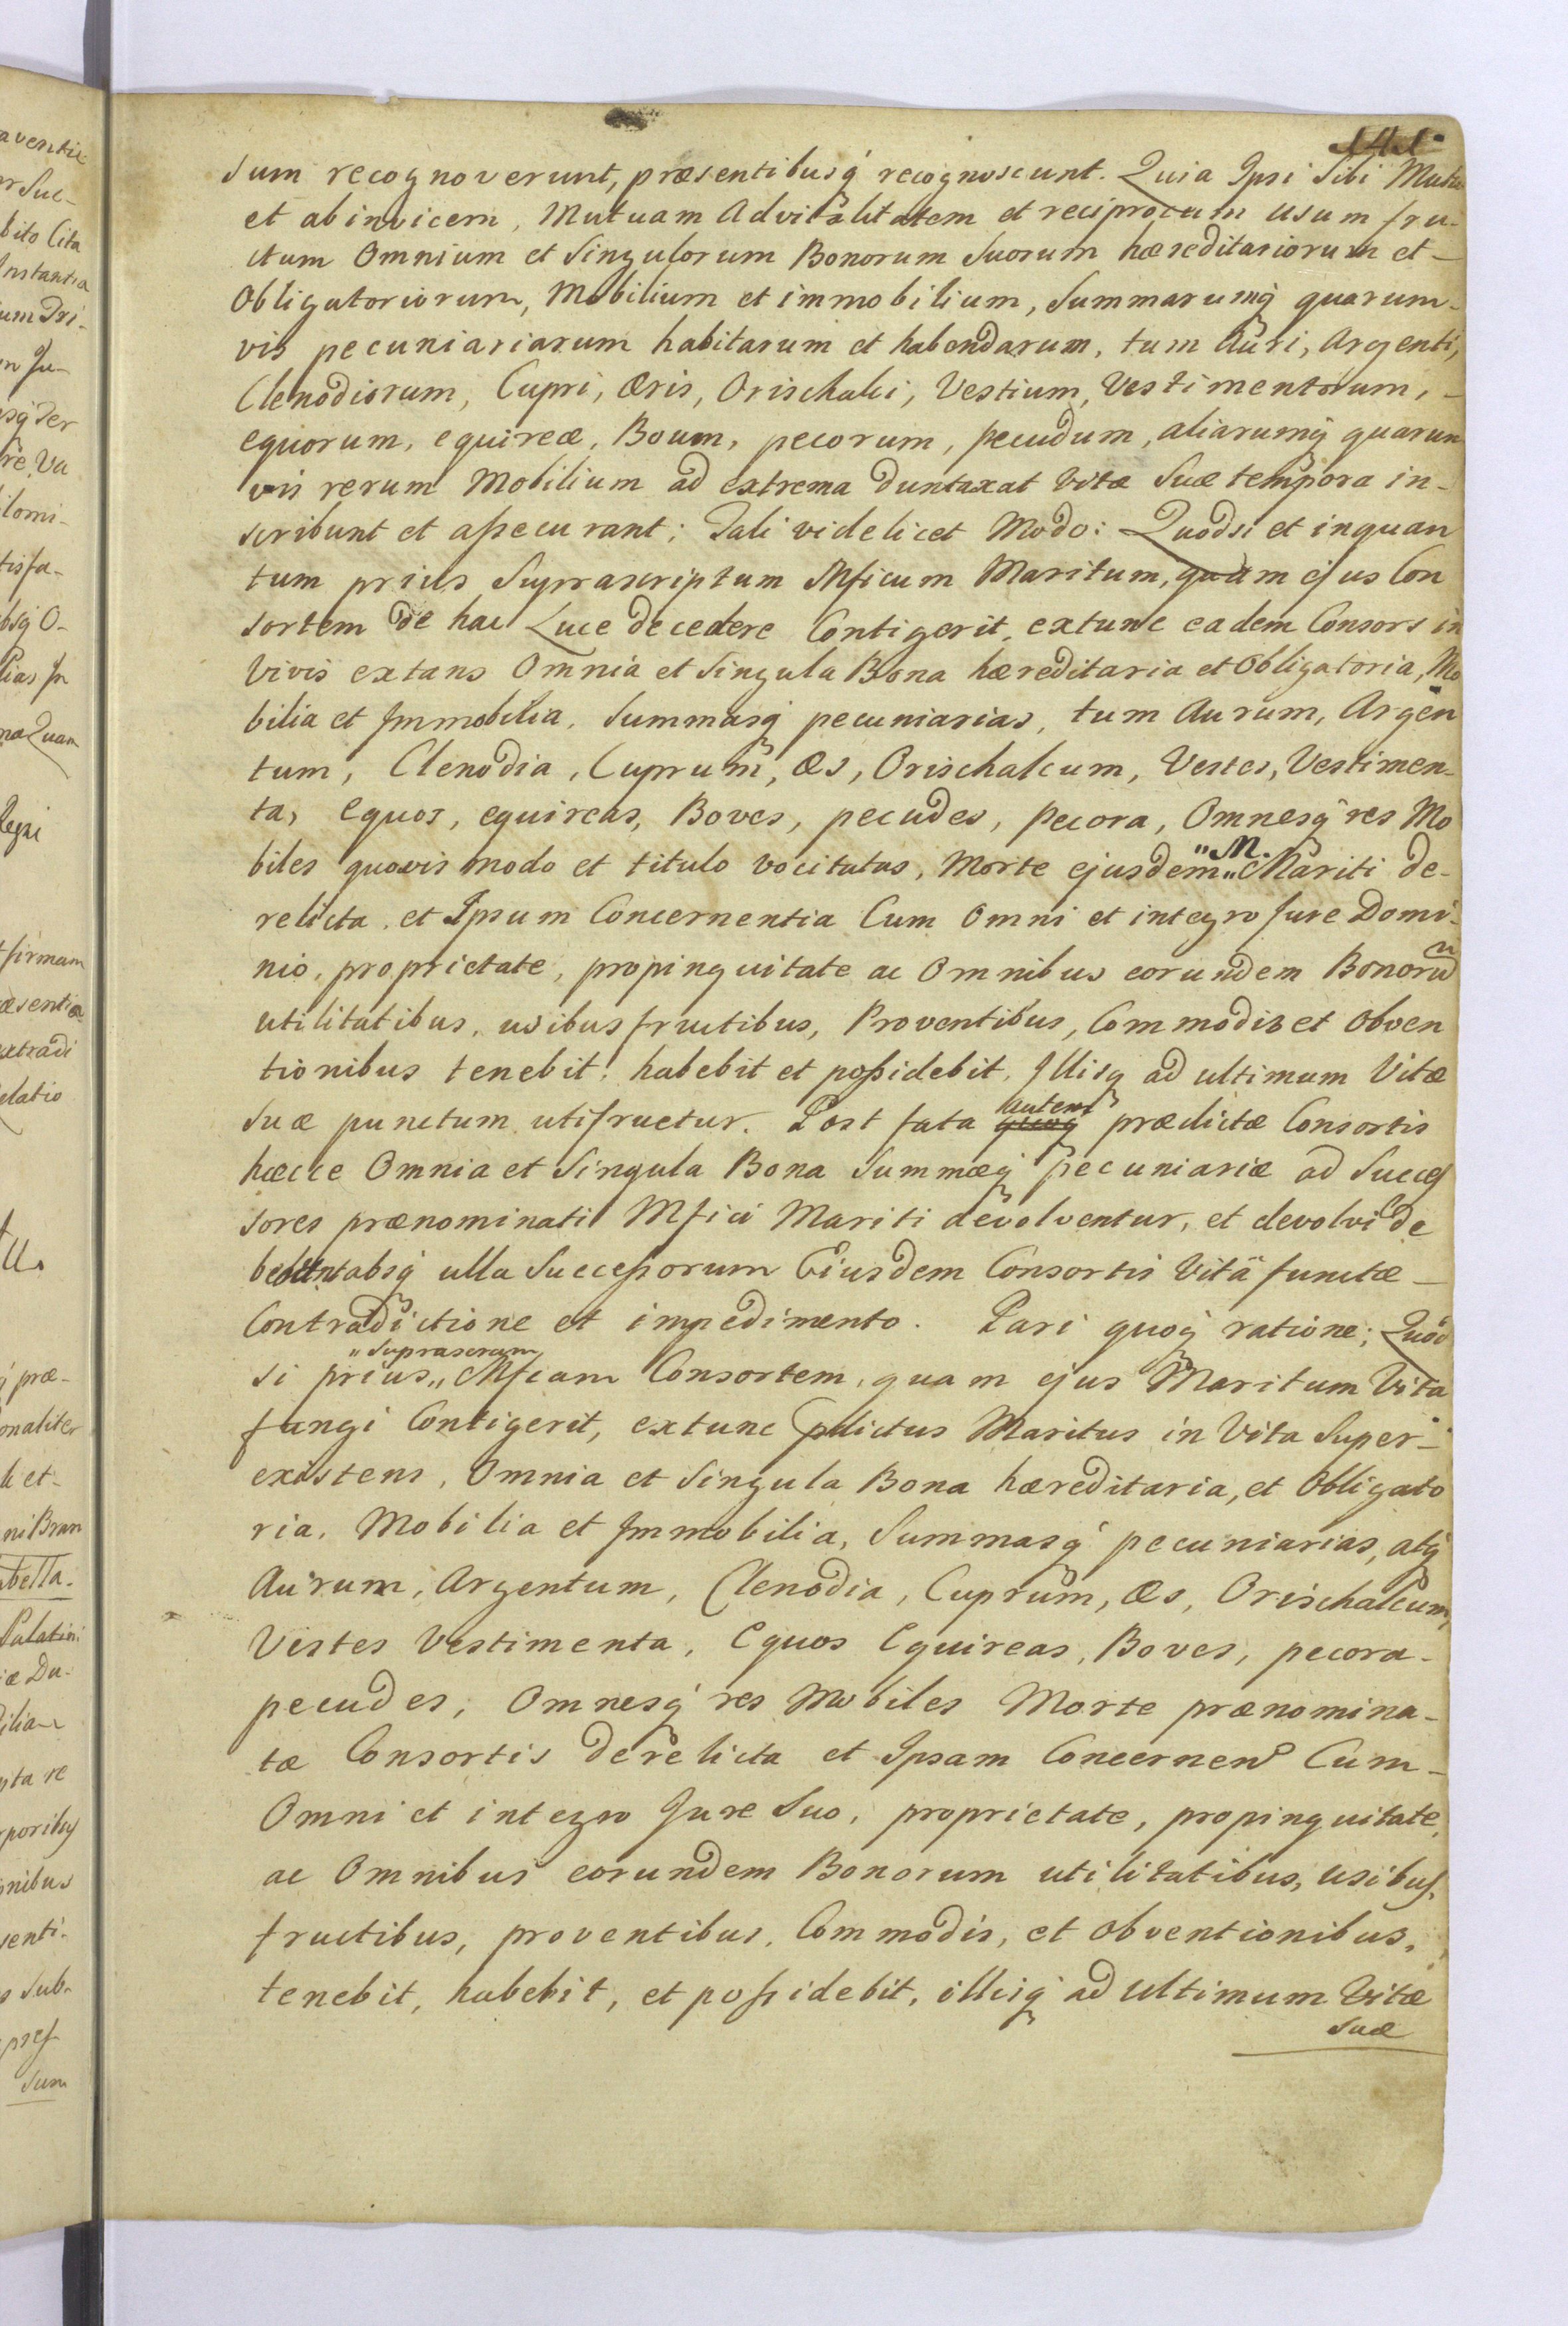 141.
sum recognoverunt, præsentibusq́ recognoscunt. Quia Ipsi Sibi Mutu
et abinvicem, Mutuam Advitalitatem et reciprocum usum fru-
ctum Omnium et Singulorum Bonorum Suorum hæreditariorum et –
Obligatoriorum, Mobilium et immobilium, Summarumq́ quarum-
vis pecuniariarum habitarum et habendarum, tum Auri, Argenti,
Clenodiorum, Cupri, Æris, Orischalci, Vestium, Vestimentorum, –
equorum, equireæ, Boum, pecorum, pecudum, aliarumq́ quarum
vis rerum Mobilium ad extrema duntaxat vitæ Suæ tempora in-
scribunt et assecurant; Tali videlicet Modo: Quodsi et inquan
tum prius Suprascriptum Mficum Maritum, quam ejus Con
sortem de hac Luce decedere Contigerit, extunc eadem Consors in
vivis extans Omnia et Singula Bona hæreditaria et Obligatoria, Mo
bilia et Immobilia, Summasq́ pecuniarias, tum Aurum, Argen
tum, Clenodia, Cuprum, Æs, Orischalcum, Vestes, Vestimen-
ta, Equos, equireas, Boves, pecudes, Pecora, Omnesq́ res Mo
biles quovis modo et titulo vocitatas, Morte ejusdem „M. „ Mariti de-
relicta, et Ipsum Concernentia Cum Omni et integro Jure Domi-
nio, proprietate, propinquitate ac Omnibus eorundem Bonorũ
utilitatibus, usibusfructibus, Proventibus, Commodis et Obven
tionibus tenebit, habebit et possidebit, Illisq́ ad ultimum Vitæ
Suæ punctum utifruetur. Post fata quoq́ autem prædictæ Consortis
hæcce Omnia et Singula Bona Summæq́ pecuniariæ ad Succes
sores prænominati Mfici Mariti devolventur, et devolvi de
bebunt absq́ ulla Successorum Eiusdem Consortis Vitâ functæ –
Contradictione et impedimento. Pari quoq́ ratione; Quod
si prius „Suprascram„ Mficam Consortem, quam ejus Maritum Vita
fungi Contigerit, extunc pdictus Maritus in Vita Super-
existens, Omnia et Singula Bona hæreditaria, et Obligato
ria, Mobilia et Immobilia, Summasq́ pecuniarias, atq́
Aurum, Argentum, Clenodia, Cuprum, Æs, Orischalcum,
Vestes Vestimenta, Equos Equireas, Boves, pecora –
pecudes, Omnesq́ res Mobiles Morte prænomina-
tæ Consortis derelicta et Ipsam Concernen Cum –
Omni et integro Jure Suo, proprietate, propinquitate,
ac Omnibus eorundem Bonorum utilitatibus, usibus,
fructibus, proventibus, Commodis, et Obventionibus,
tenebit, habebit, et possidebit, illisq́ ad Ultimum Vitæ
Suæ